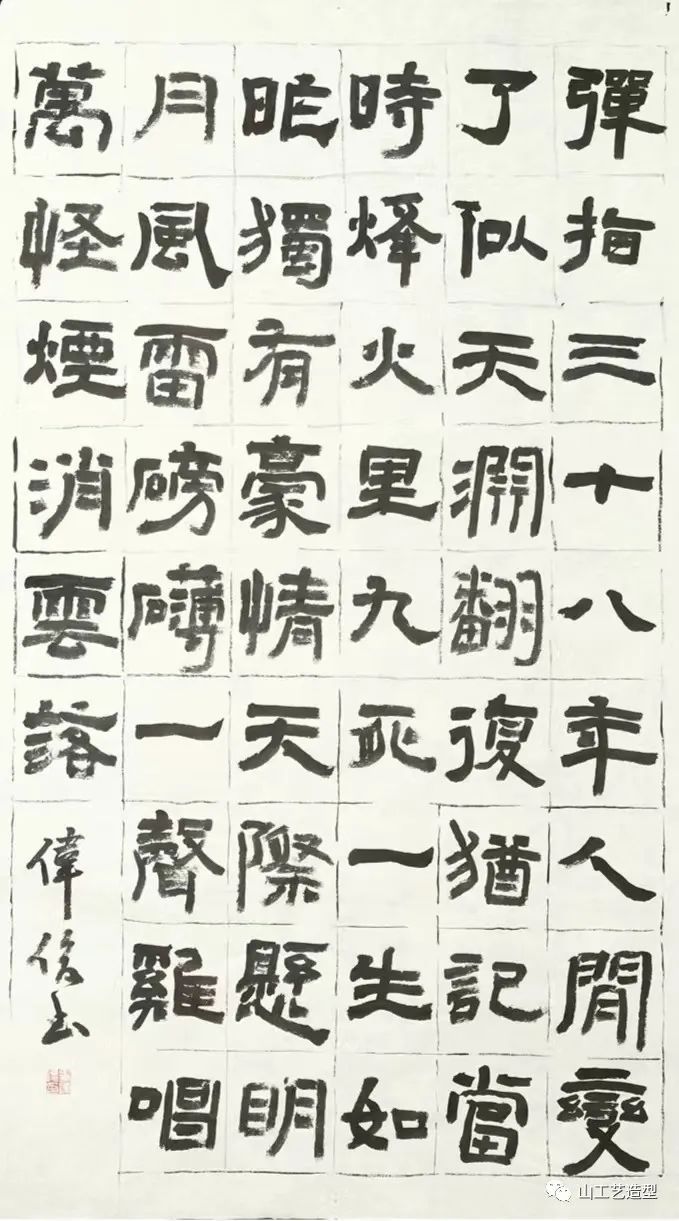 彈指三十八年人間變
了似天淵翻復猶記當
時烽火里九死一生如
昨獨有豪情天際懸明
月風雷磅礴一聲雞唱
萬怪煙消雲落
偉信书
山工艺造型